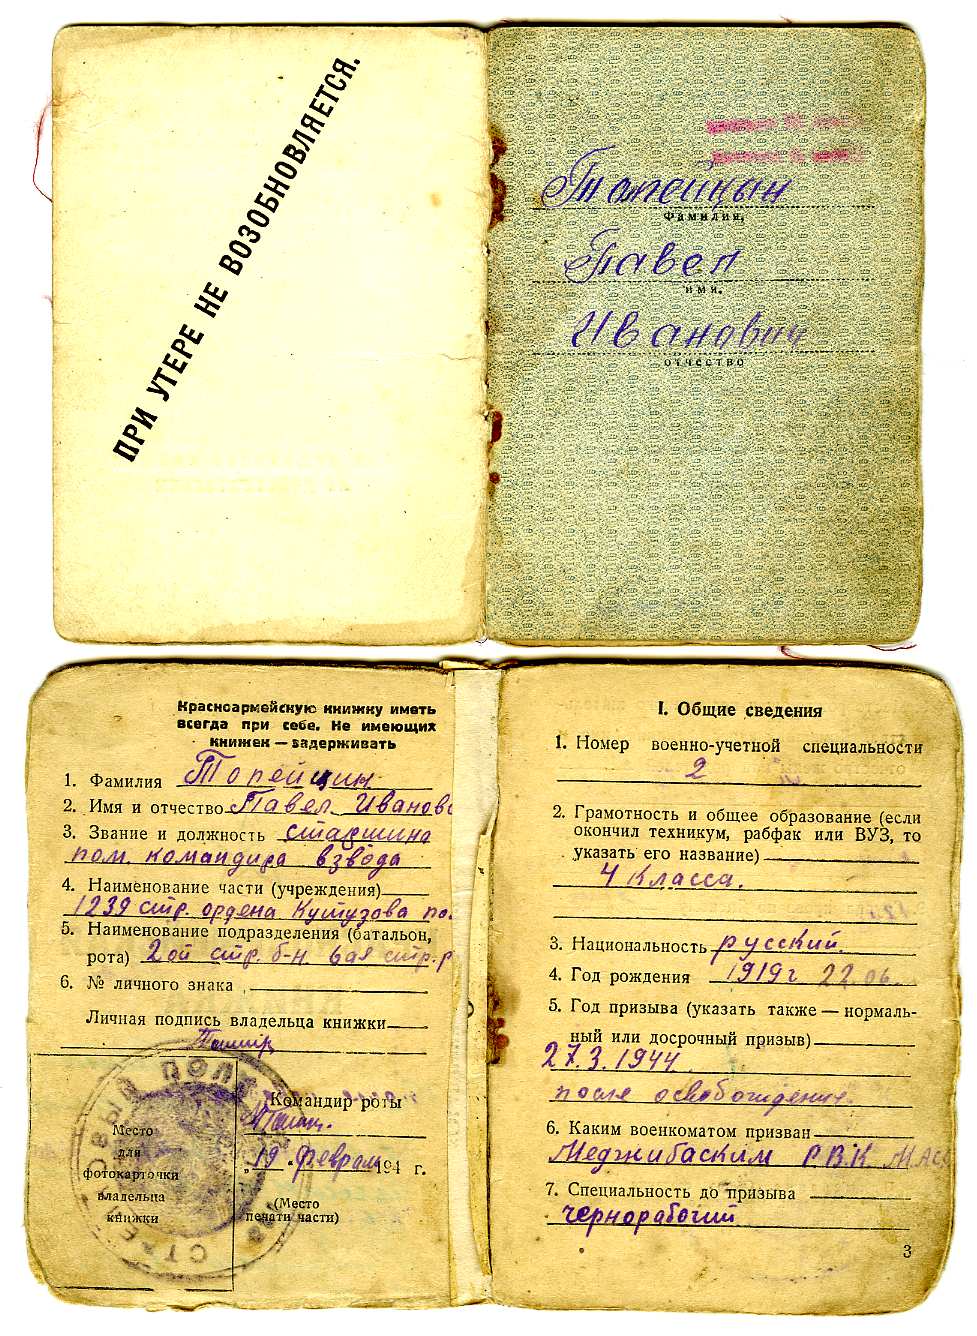 ПРИ УТЕРЕ НЕ ВОЗОБНОВЛЯЕТСЯ.
Топейцын
Фамилия,
Павел
имя.
Иванович
отчество
Красноармейскую книжку иметь
всегда при себе. Не имеющих
книжек — задерживать
1. Фамилия Топейцин
2. Имя и отчество Павел Иванов
3. Звание и должность старшина
пом. командира взвода
4. Наименование части (учреждения)
1239 стр. ордена Кутузова по.
5. Наименование подразделения (батальон,
рота) 2ой стр. б-н 6ая стр. р
6. № личного знака
Личная подпись владельца книжки
Место
для
фотокарточки
владельца
книжки
Командир роты
„19„ февраля 194 г.
(Место
печати части)
I. Общие сведения
1. Номер военно-учетной специальности
2
2. Грамотность и общее образование (если
окончил техникум, рабфак или ВУЗ, то
указать его название)
4 класса.
3. Национальность русский
4. Год рождения 1919 г 22.06.
5. Год призыва (указать также — нормаль-
ный или досрочный призыв)
27.3.1944
после освобождения.
6. Каким военкоматом призван
Меджибаским РВК
7. Специальность до призыва
чернорабогий
3